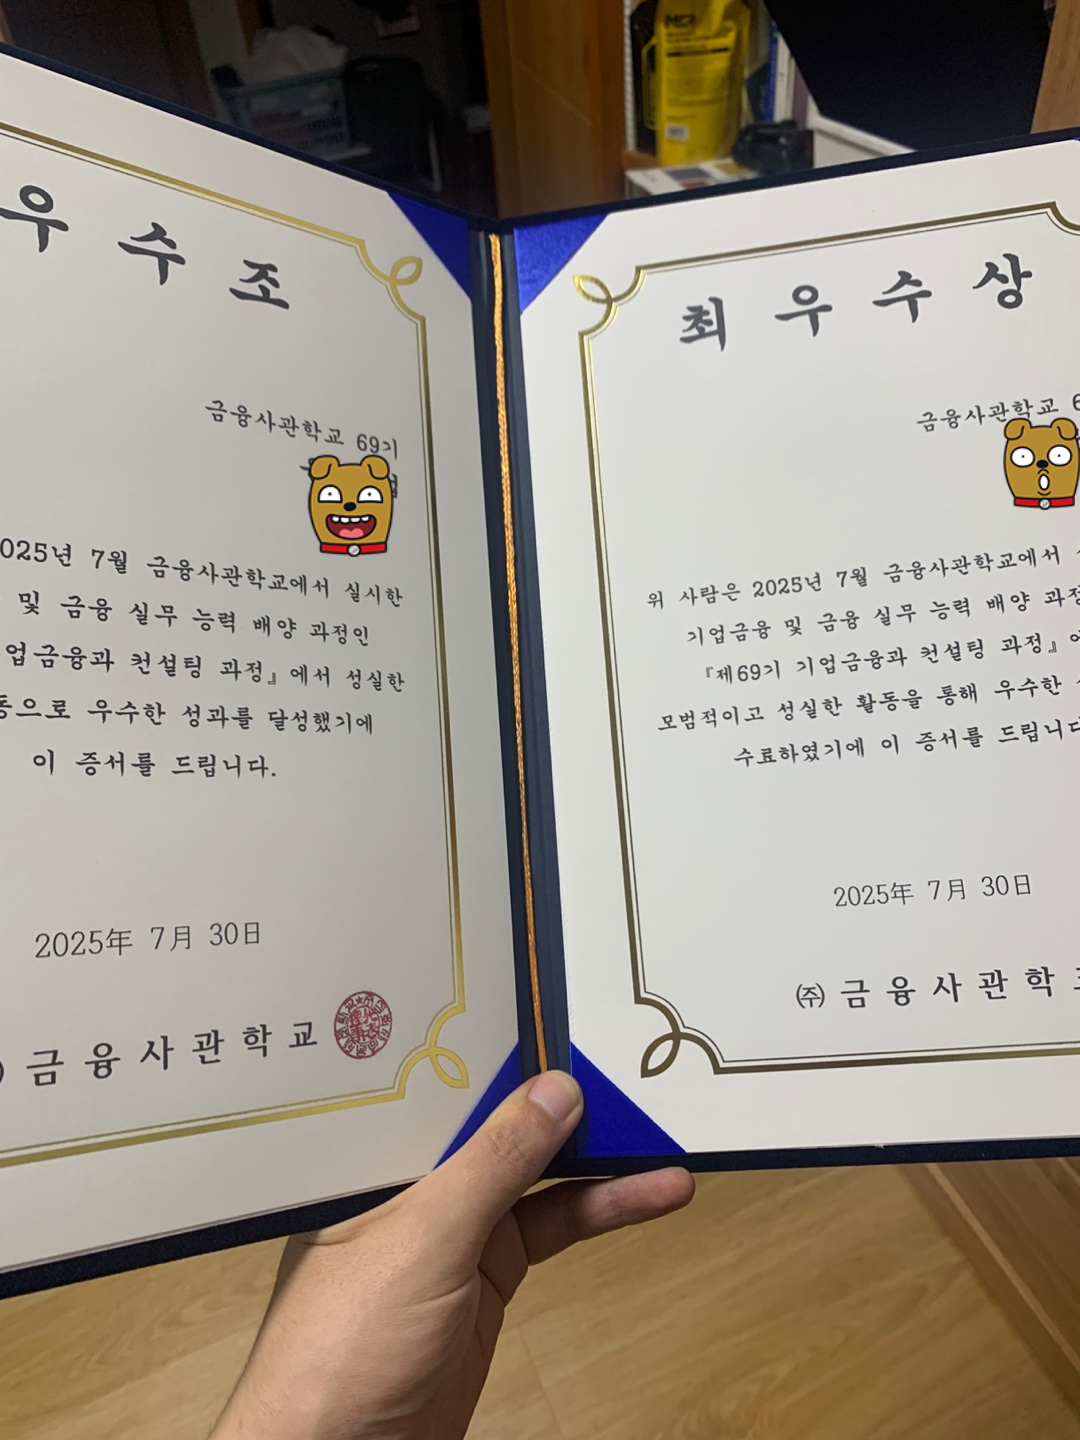 우 수 조
금융사관학교 69기
025년 7월 금융사관학교에서 실시한
및 금융 실무 능력 배양 과정인
업금융과 컨설팅 과정』에서 성실한
동으로 우수한 성과를 달성했기에
이 증서를 드립니다.
2025年 7月 30日
금 융 사 관 학 교
최 우 수 상
금융사관학교 6
위 사람은 2025년 7월 금융사관학교에서
기업금융 및 금융 실무 능력 배양 과정
『제69기 기업금융과 컨설팅 과정』에
모범적이고 성실한 활동을 통해 우수한
수료하였기에 이 증서를 드립니다
2025年 7月 30日
㈜ 금 융 사 관 학